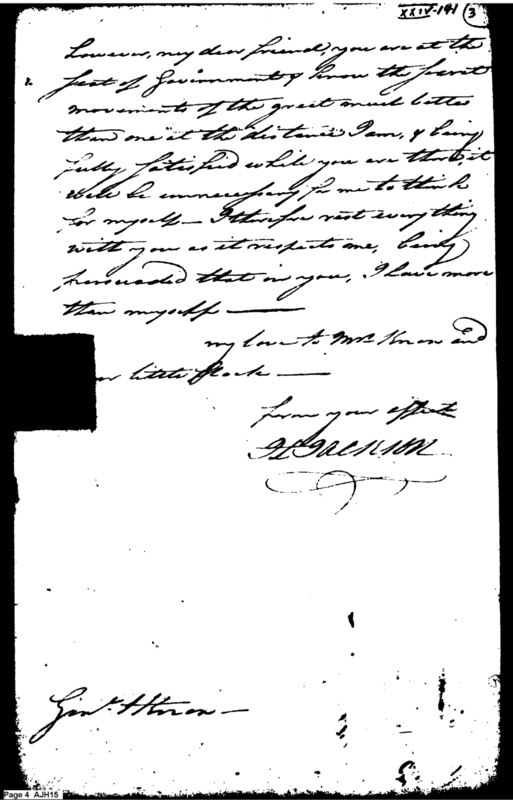 XXIV-141 3
however, my dear friend, you are at the
seat of Government & know the secret
movements of the great much better
than one at the distance I am, & being
fully satisfied while you are there, it
will be unnecessary for me to think
for myself — I therefore rest everything
with you as it respects me, being
persuaded that in you, I have more
than myself —
my love to Mrs Knox and
little flock —
from your affect
H Jackson
Genl. H Knox —
Page 4 AJH15